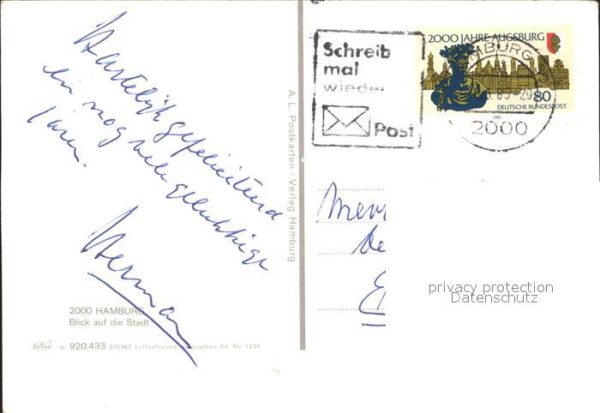 Hartelijk gefeliciteerd
en nog vele gelukkige
jaren.
Herman
2000 HAMBURG
Blick auf die Stadt
920.433
Luftaufnahme
A. L. Postkarten - Verlag Hamburg
Schreib
mal
wieder
Post
2000 JAHRE AUGSBURG
80
DEUTSCHE BUNDESPOST
HAMBURG
2000
privacy protection
Datenschutz